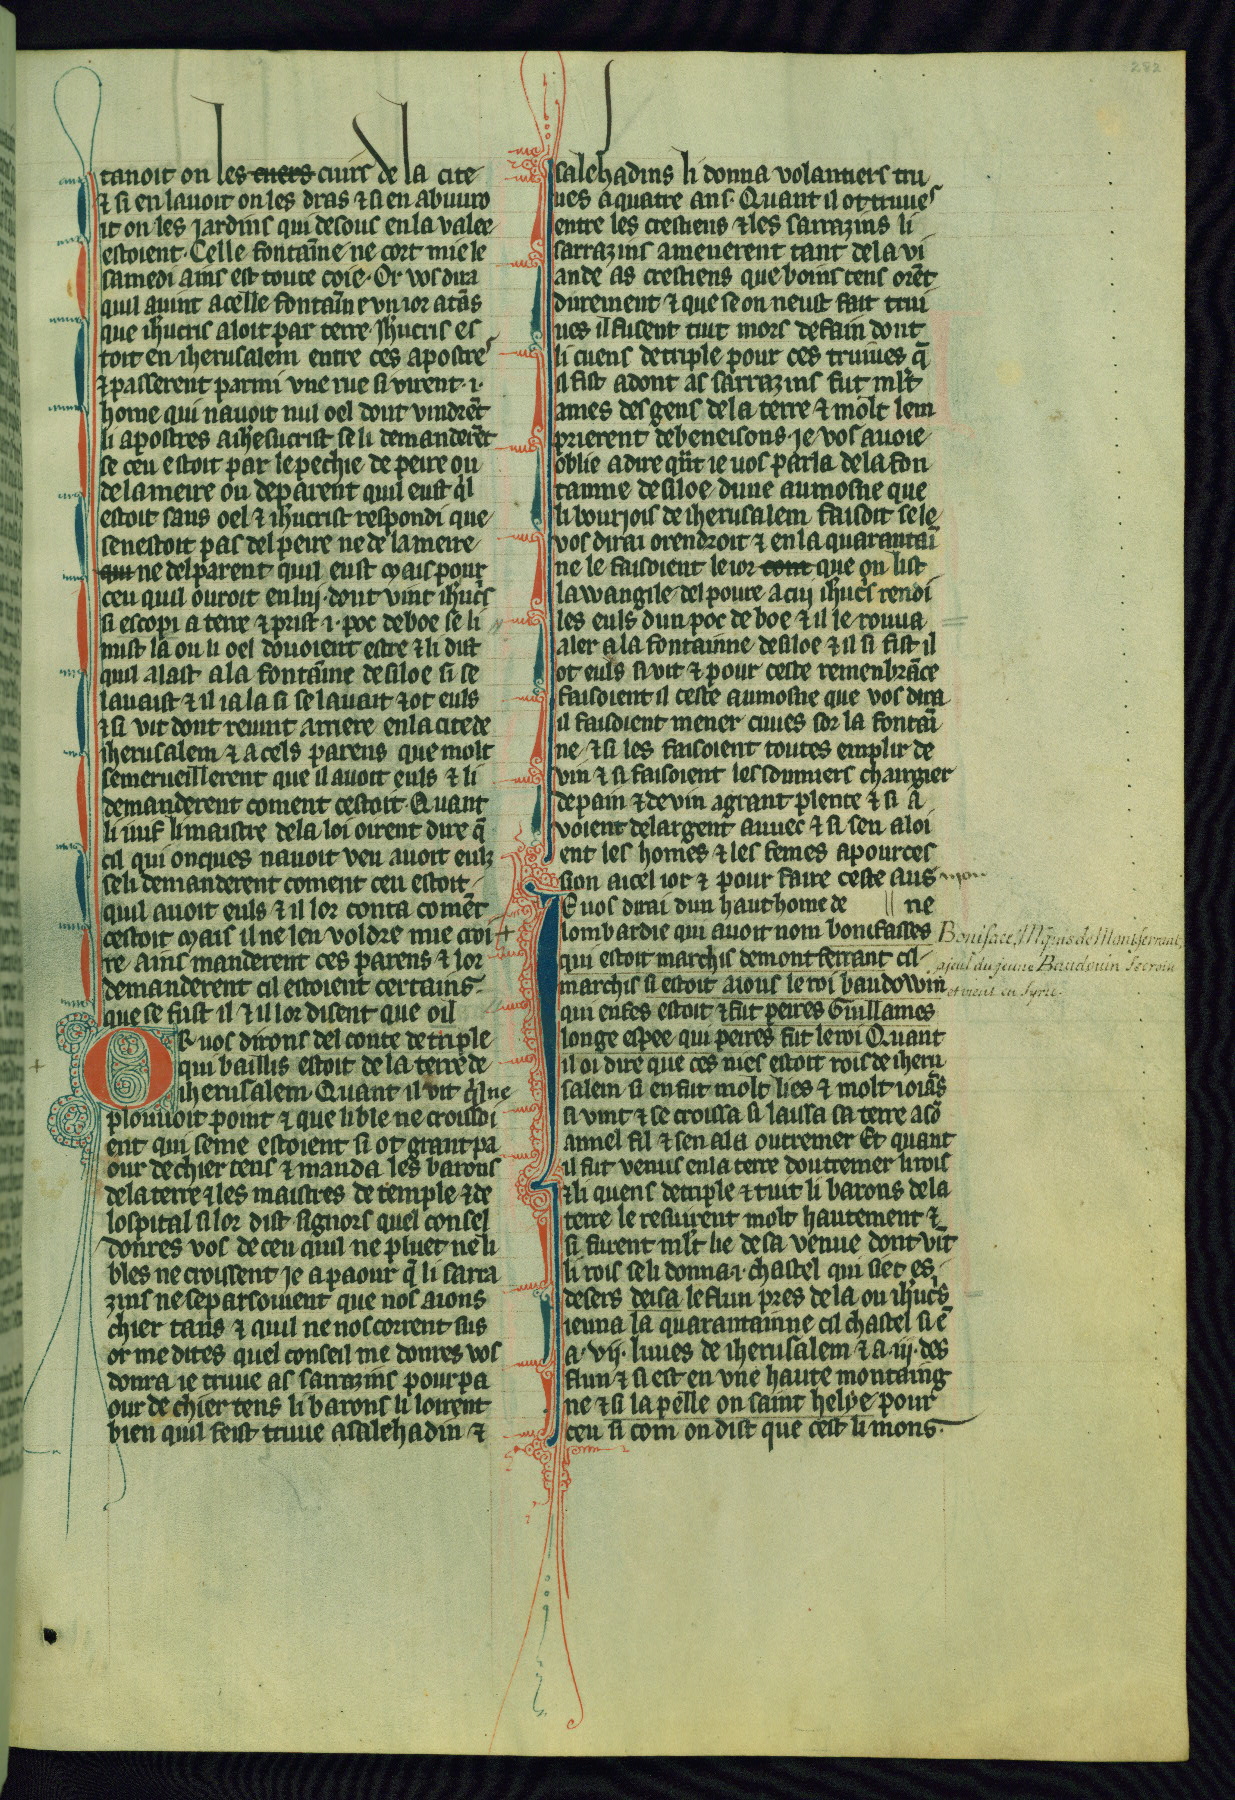 282
tanoit on les cuers cuirs de la cite
⁊ si en lauoit on les dras ⁊ si en abuuro
it on les jardins qui desous en la valee
estoient. Celle fontaīne ne cort mie le
samedi ains est toute coie. Or vos dira
quil auint a celle fontaīne vn ior atās
que ihucris aloit par terre. Jhucris es
toit en iherusalem entre ces apostres
⁊ passerent parmi vne rue si virent .i.
home qui nauoit nul oel dont vindrēt
li apostres a ihesucrist se li demanderēt
se ceu estoit par le pechie de peire ou
de la meire ou de parent quil eust ql
estoit sans oel ⁊ ihucrist respondi que
se nestoit pas del peire ne de la meire
qui ne del parent quil eust mais pour
ceu quil ouroit en lui. dont vint ihucs
si escopi a terre ⁊ prist .i. poc de boe se li
mist la ou li oel douoient estre ⁊ li dist
quil alast a la fontaīne de siloe si se
lauaist ⁊ il i ala si se lauait ⁊ ot euls
⁊ si vit dont reuint arriere en la cite de
iherusalem ⁊ a cels parens que molt
semerueillerent que il auoit euls ⁊ li
demanderent coment cestoit. Quant
li iuif li maistre de la loi oirent dire q̄
cil qui onques nauoit veu auoit eulz
se li demanderent coment ceu estoit
quil auoit euls ⁊ il lor conta comēt
cestoit mais il ne len voldre mie croi
re ains manderent ces parens ⁊ lor
demanderent cil estoient certains
que se fust il ⁊ il lor disent que oil
OR uos dirons del conte de triple
qui baillis estoit de la terre de
iherusalem. Quant il vit ql ne
plouuoit point ⁊ que li ble ne croissoi
ent qui seme estoient si ot grant pa
our de chier tens ⁊ manda les barons
de la terre ⁊ les maistres de temple ⁊ de
lospital si lor dist signors quel consel
donres vos de ceu quil ne pluet ne li
bles ne croissent je a paour q̄ li sarra
zins ne separsoiuent que nos aions
chier tans ⁊ quil ne nos corrent sus
or me dites quel conseil me donres vos
donra ie truue as sarrazins pour pa
our de chier tens li barons li loirent
bien quil feist truue a salehadin ⁊
salehadins li donna volantiers tru
ues a quatre ans. Quant il ot truues
entre les crestiens ⁊ les sarrazins li
sarrazins amenerent tant de la vi
ande as crestiens que boins tens orēt
durement ⁊ que se on neust fait trui
ues il fusent tuit mors de fain dont
li cuens de triple pour ces truiues q̄
il fist adont as sarrazins fut mlt
ames des gens de la terre ⁊ molt lem
prierent de beneisons. je vos auoie
oblie a dire qnt ie uos parla de la fon
tainne de siloe dune aumosne que
li bourjois de iherusalem faisoit se le
vos dirai orendroit ⁊ en la quarantai
ne le faisoient le ior cont que on list
lawangile del poure a cui ihucs rendi
les euls dun poc de boe ⁊ il le rouua
aler a la fontainne de siloe ⁊ il si fist il
ot euls si vit ⁊ pour ceste remenbrāce
faisoient il ceste aumosne que vos dira
il faisoient mener cuues sor la fontai
ne ⁊ si les faisoient toutes emplir de
vin ⁊ si faisoient les somiers chargier
de pain ⁊ de vin a grant plente ⁊ si a
voient de largent auuec ⁊ si sen aloi
ent les homes ⁊ les femes a pources
sion a icel ior ⁊ pour faire ceste aus
mon
IE uos dirai dun haut home de || ne
lombardie qui auoit nom bonifasses
qui estoit marchis de mont ferrant cil
marchis si estoit aious le roi baudowin
qui enfes estoit ⁊ fut peires Guillames
longe espee qui peires fut le roi. Quant
il oi dire que ces nies estoit rois de iheru
salem si en fut molt lies ⁊ molt ioiās
si vint ⁊ se croissa si laissa sa terre a sō
annel fil ⁊ sen ala outremer. Et quant
il fut venus en la terre doutremer li rois
⁊ li quens de triple ⁊ tuit li barons de la
terre le resurent molt hautement ⁊
si furent mlt lie de sa venue dont vit
li rois se li donna .i. chastel qui siet es
desers deisa le flun pres de la ou ihucs
ieuna la quarantainne cil chastel si ē
a .vij. liuues de iherusalem ⁊ a .iij. des
flun ⁊ si est en vne haute montaing
ne ⁊ si lapelle on saint helye pour
ceu si com on dist que cest li mons
Boniface, Mqis de Montferrant,
ajeul du jeune Baudouin Se croise
et vient en Syrie.